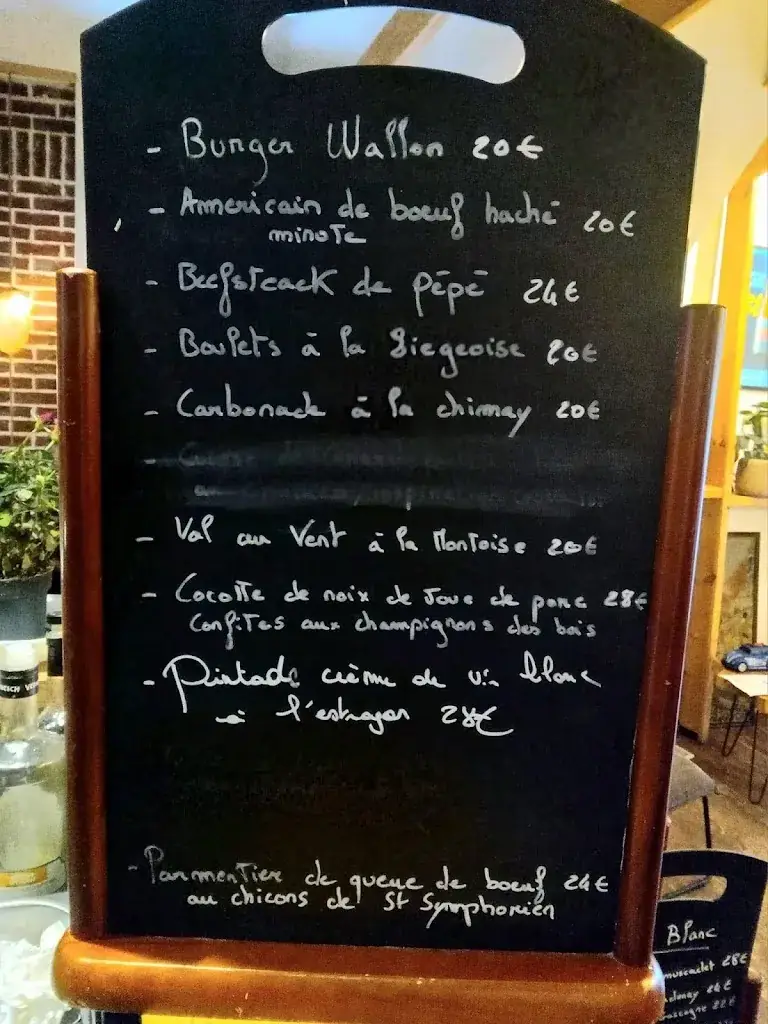 - Burger Wallon 20€
- Américain de boeuf haché 20€
minute
- Beefsteack de pépé 24€
- Boulets à la Liégeoise 20€
- Carbonade à la chimay 20€
- Val au Vent à la Montoise 20€
- Cocotte de noix de Joue de porc 28€
Confites aux champignons des bois
- Pintade crème de vin blanc
à l'estragon 28€
- Parmentier de queue de boeuf 24€
au chicons de St Symphorien
Blanc
muscadet 28€